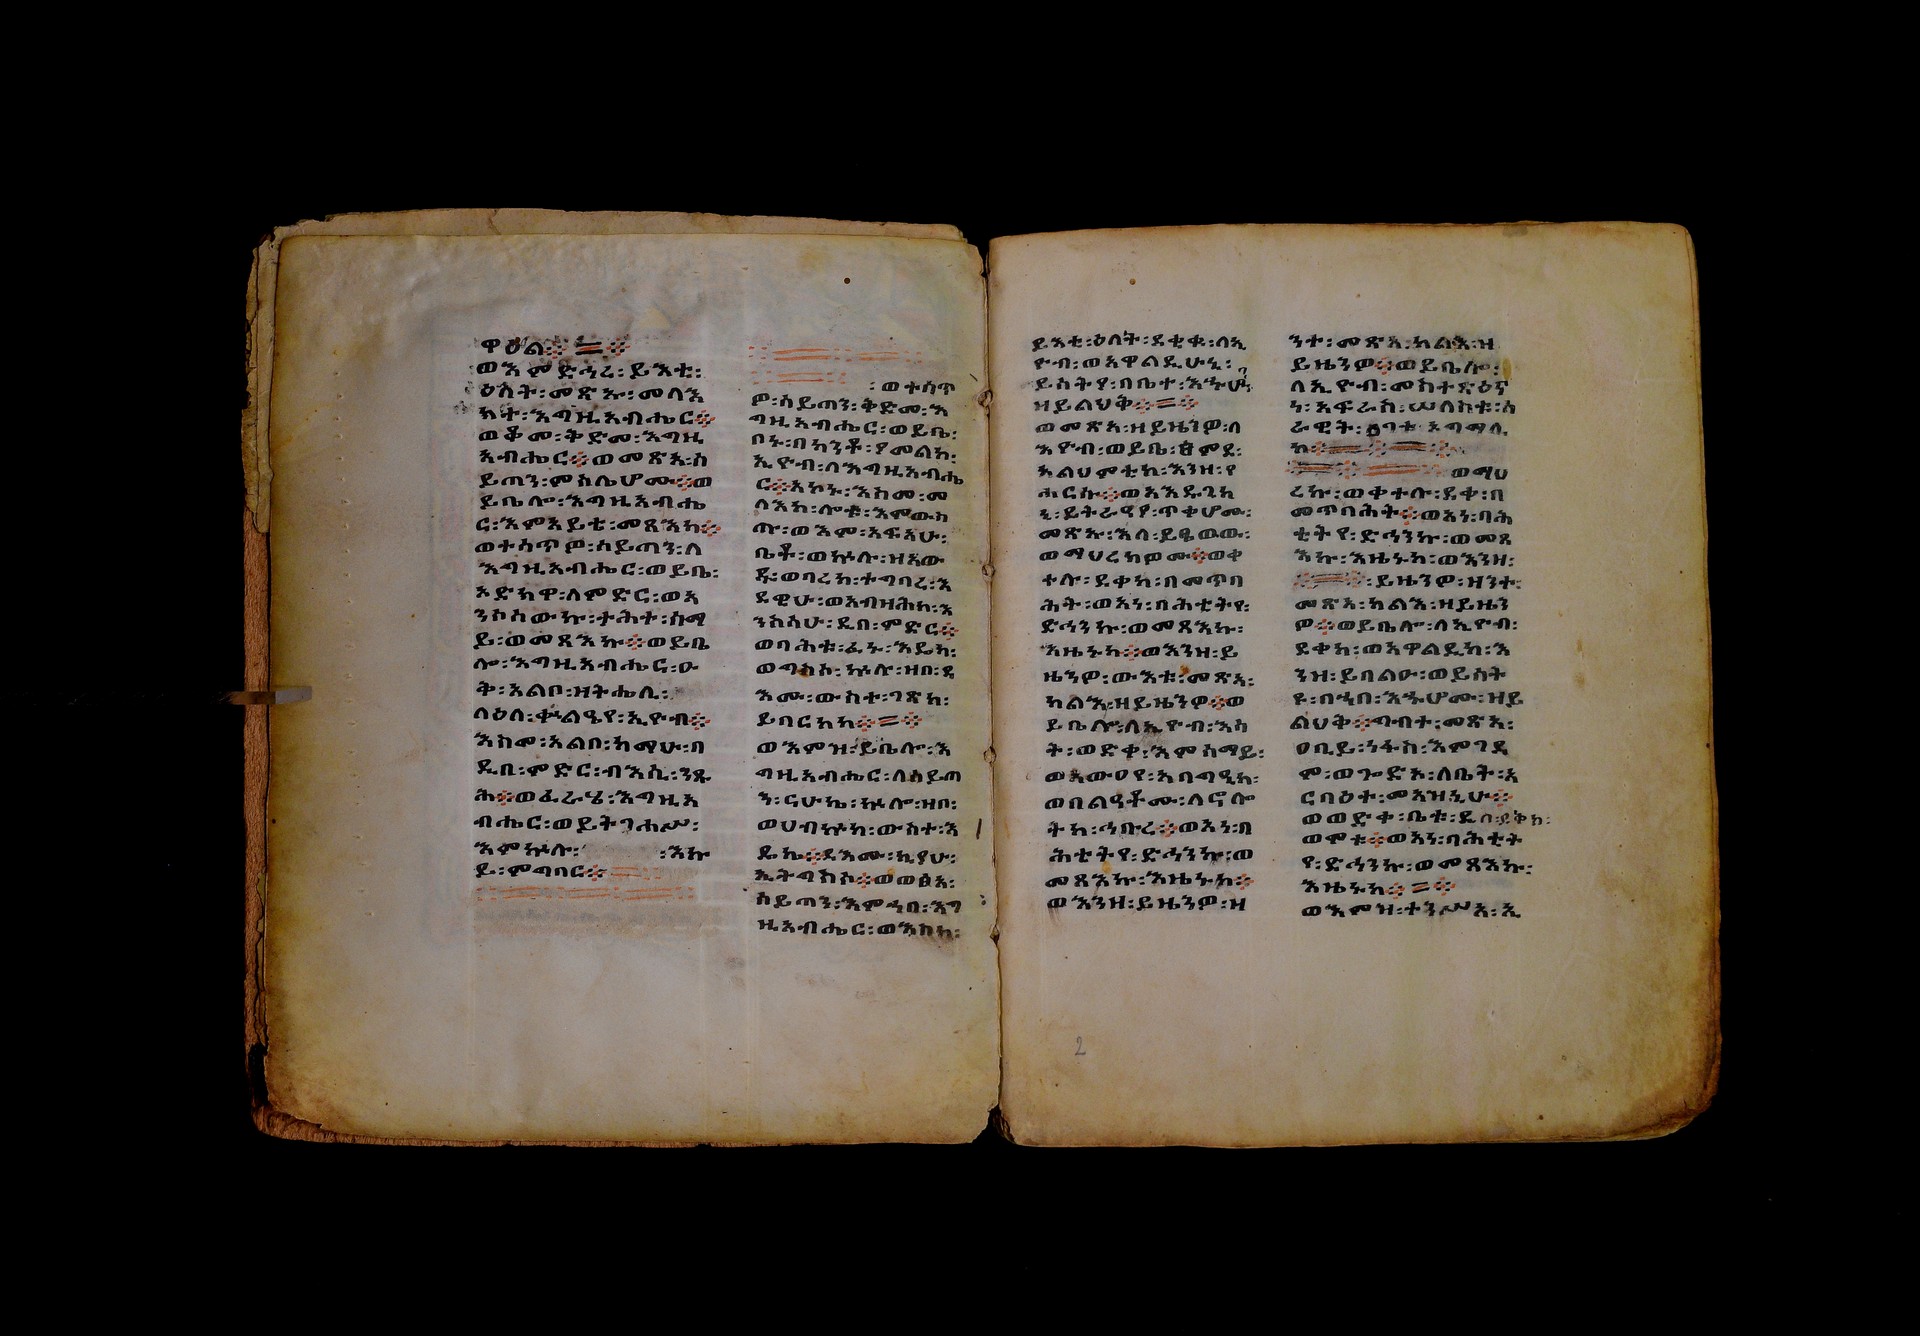 ዋዕል፨ = ፨
ወእምድኅረ፡ ይእቲ፡
ዕለት፡ መጽኡ፡ መላእ
ክት፡ እግዚአብሔር፨
ወቆሙ፡ ቅድመ፡ እግዚ
አብሔር፨ ወመጽአ፡ ሰ
ይጣን፡ ምስሌሆሙ፨ ወ
ይቤሎ፡ እግዚአብሔ
ር፡ እምአይቴ፡ መጻእከ፨
ወተሰጥዎ፡ ሰይጣን፡ ለ
እግዚአብሔር፡ ወይቤ፡
አድክዋ፡ ለምድር፡ ወአ
ንሶሰውኩ፡ ተሕተ፡ ሰማ
ይ፡ ወመጻእኩ፨ ወይቤ
ሎ፡ እግዚአብሔር፡ ዑ
ቅ፡ አልቦ፡ ዘትሔሊ፡
ላዕለ፡ ቍልዔየ፡ ኢዮብ፨
እስመ፡ አልቦ፡ ከማሁ፡ በ
ዲበ፡ ምድር፡ ብእሲ፡ ንጹ
ሕ፨ ወፈራሄ፡ እግዚአ
ብሔር፡ ወይትገሐሥ፡
እምኵሉ፡ ፡ እኩ
ይ፡ ምግባር፨
፡ ወተሰጥ
ዎ፡ ሰይጣን፡ ቅድመ፡ እ
ግዚአብሔር፡ ወይቤ፡
ቦኑ፡ በከንቶ፡ ያመልክ፡
ኢዮብ፡ ለእግዚአብሔ
ር፨ አኮኑ፡ እስመ፡ መ
ላእከ፡ ሎቱ፡ እምውስ
ጡ፡ ወእም፡ አፍአሁ፡
ቤቶ፡ ወኵሉ፡ ዝአው
ዱ፡ ወባረከ፡ ተግባረ፡ እ
ደዊሁ፡ ወአብዛሕከ፡ እ
ንስሳሁ፡ ዲበ፡ ምድር፨
ወባሕቱ፡ ፈኑ፡ እዴከ፡
ወግስስ፡ ኵሉ፡ ዘቦ፡ ዳ
እሙ፡ ውስተ፡ ገጽከ፡
ይባርከከ፨ = ፨
ወእምዝ፡ ይቤሎ፡ እ
ግዚአብሔር፡ ለሰይጣ
ን፡ ናሁኬ፡ ኵሎ፡ ዘቦ፡
ወሀብኩከ፡ ውስተ፡ እ
ዴከ፨ ዳእሙ፡ ኪያሁ፡
ኢትግስስ፨ ወወፅአ፡
ሰይጣን፡ እምኀበ፡ እግ
ዚአብሔር፡ ወእስከ፡
ይእቲ፡ ዕለት፡ ደቂቁ፡ ለኢ
ዮብ፡ ወአዋልዲሁኒ፡
ይሰትዩ፡ በቤተ፡ እኁሆ፡
ዘይልህቅ፨ = ፨
ወመጽአ፡ ዘይዜንዎ፡ ለ
ኢዮብ፡ ወይቤ፡ ፀምደ፡
አልህምቲከ፡ እንዘ፡ የ
ሐርሱ፨ ወአእዱጊከ
ኒ፡ ይትራዐያ፡ ጥቃሆሙ፡
መጽኡ፡ እለ፡ ይፄወዉ፡
ወማህረከዎሙ፨ ወቀ
ተሉ፡ ደቀከ፡ በመጥባ
ሕት፡ ወአነ፡ ባሕቲትየ፡
ድኅንኩ፡ ወመጻእኩ፡
እዜኑከ፨ ወእንዘ፡ ይ
ዜንዎ፡ ውእቱ፡ መጽአ፡
ካልእ፡ ዘይዜንዎ፨ ወ
ይቤሎ፡ ለኢዮብ፡ እሳ
ት፡ ወድቀ፡ እምሰማይ፡
ወአውዐየ፡ አባግዒከ፡
ወበልዓቶሙ፡ ለኖሎ
ትከ፡ ኅቡረ፨ ወአነ፡ በ
ሕቲትየ፡ ድኅንኩ፡ ወ
መጻእኩ፡ እዜኑከ፨
ወእንዘ፡ ይዜንዎ፡ ዘ
ንተ፡ መጽአ፡ ካልእ፡ ዘ
ይዜንዎ፨ ወይቤሎ፡
ለኢዮብ፡ መስተጽዕና
ነ፡ አፍራስ፡ ሠለስቱ፡ ሰ
ራዊት፡ ዐገቱ አግማሊ
ከ፨ = ፨ = ፨
ወማህ
ረኩ፡ ወቀተሉ፡ ደቀ፡ በ
መጥባሕት፨ ወአነ፡ ባሕ
ቲትየ፡ ድኅንኩ፡ ወመጻ
እኩ፡ እዜኑከ፡ ወእንዘ፡
፡ ይዜንዎ፡ ዘንተ፡
መጽአ፡ ካልእ፡ ዘይዜን
ዎ፨ ወይቤሎ፡ ለኢዮብ፡
ደቀከ፡ ወአዋልዲከ፡ እ
ንዘ፡ ይበልዑ፡ ወይሰት
ዩ፡ በኀበ፡ እኁሆሙ፡ ዘይ
ልህቅ፨ ግብተ፡ መጽአ፡
ዐቢይ፡ ነፋስ፡ እምገዳ
ም፡ ወጐድአ፡ ለቤት፡ አ
ርባዕተ፡ መአዝኒሁ፨
ወወድቀ፡ ቤቱ፡ ዲበ፡ ደቅከ፡
ወሞቱ፨ ወአነ፡ ባሕቲት
የ፡ ድኅንኩ፡ ወመጻእኩ፡
እዜኑከ፨ = ፨
ወእምዝ፡ ተንሥአ፡ ኢ
2